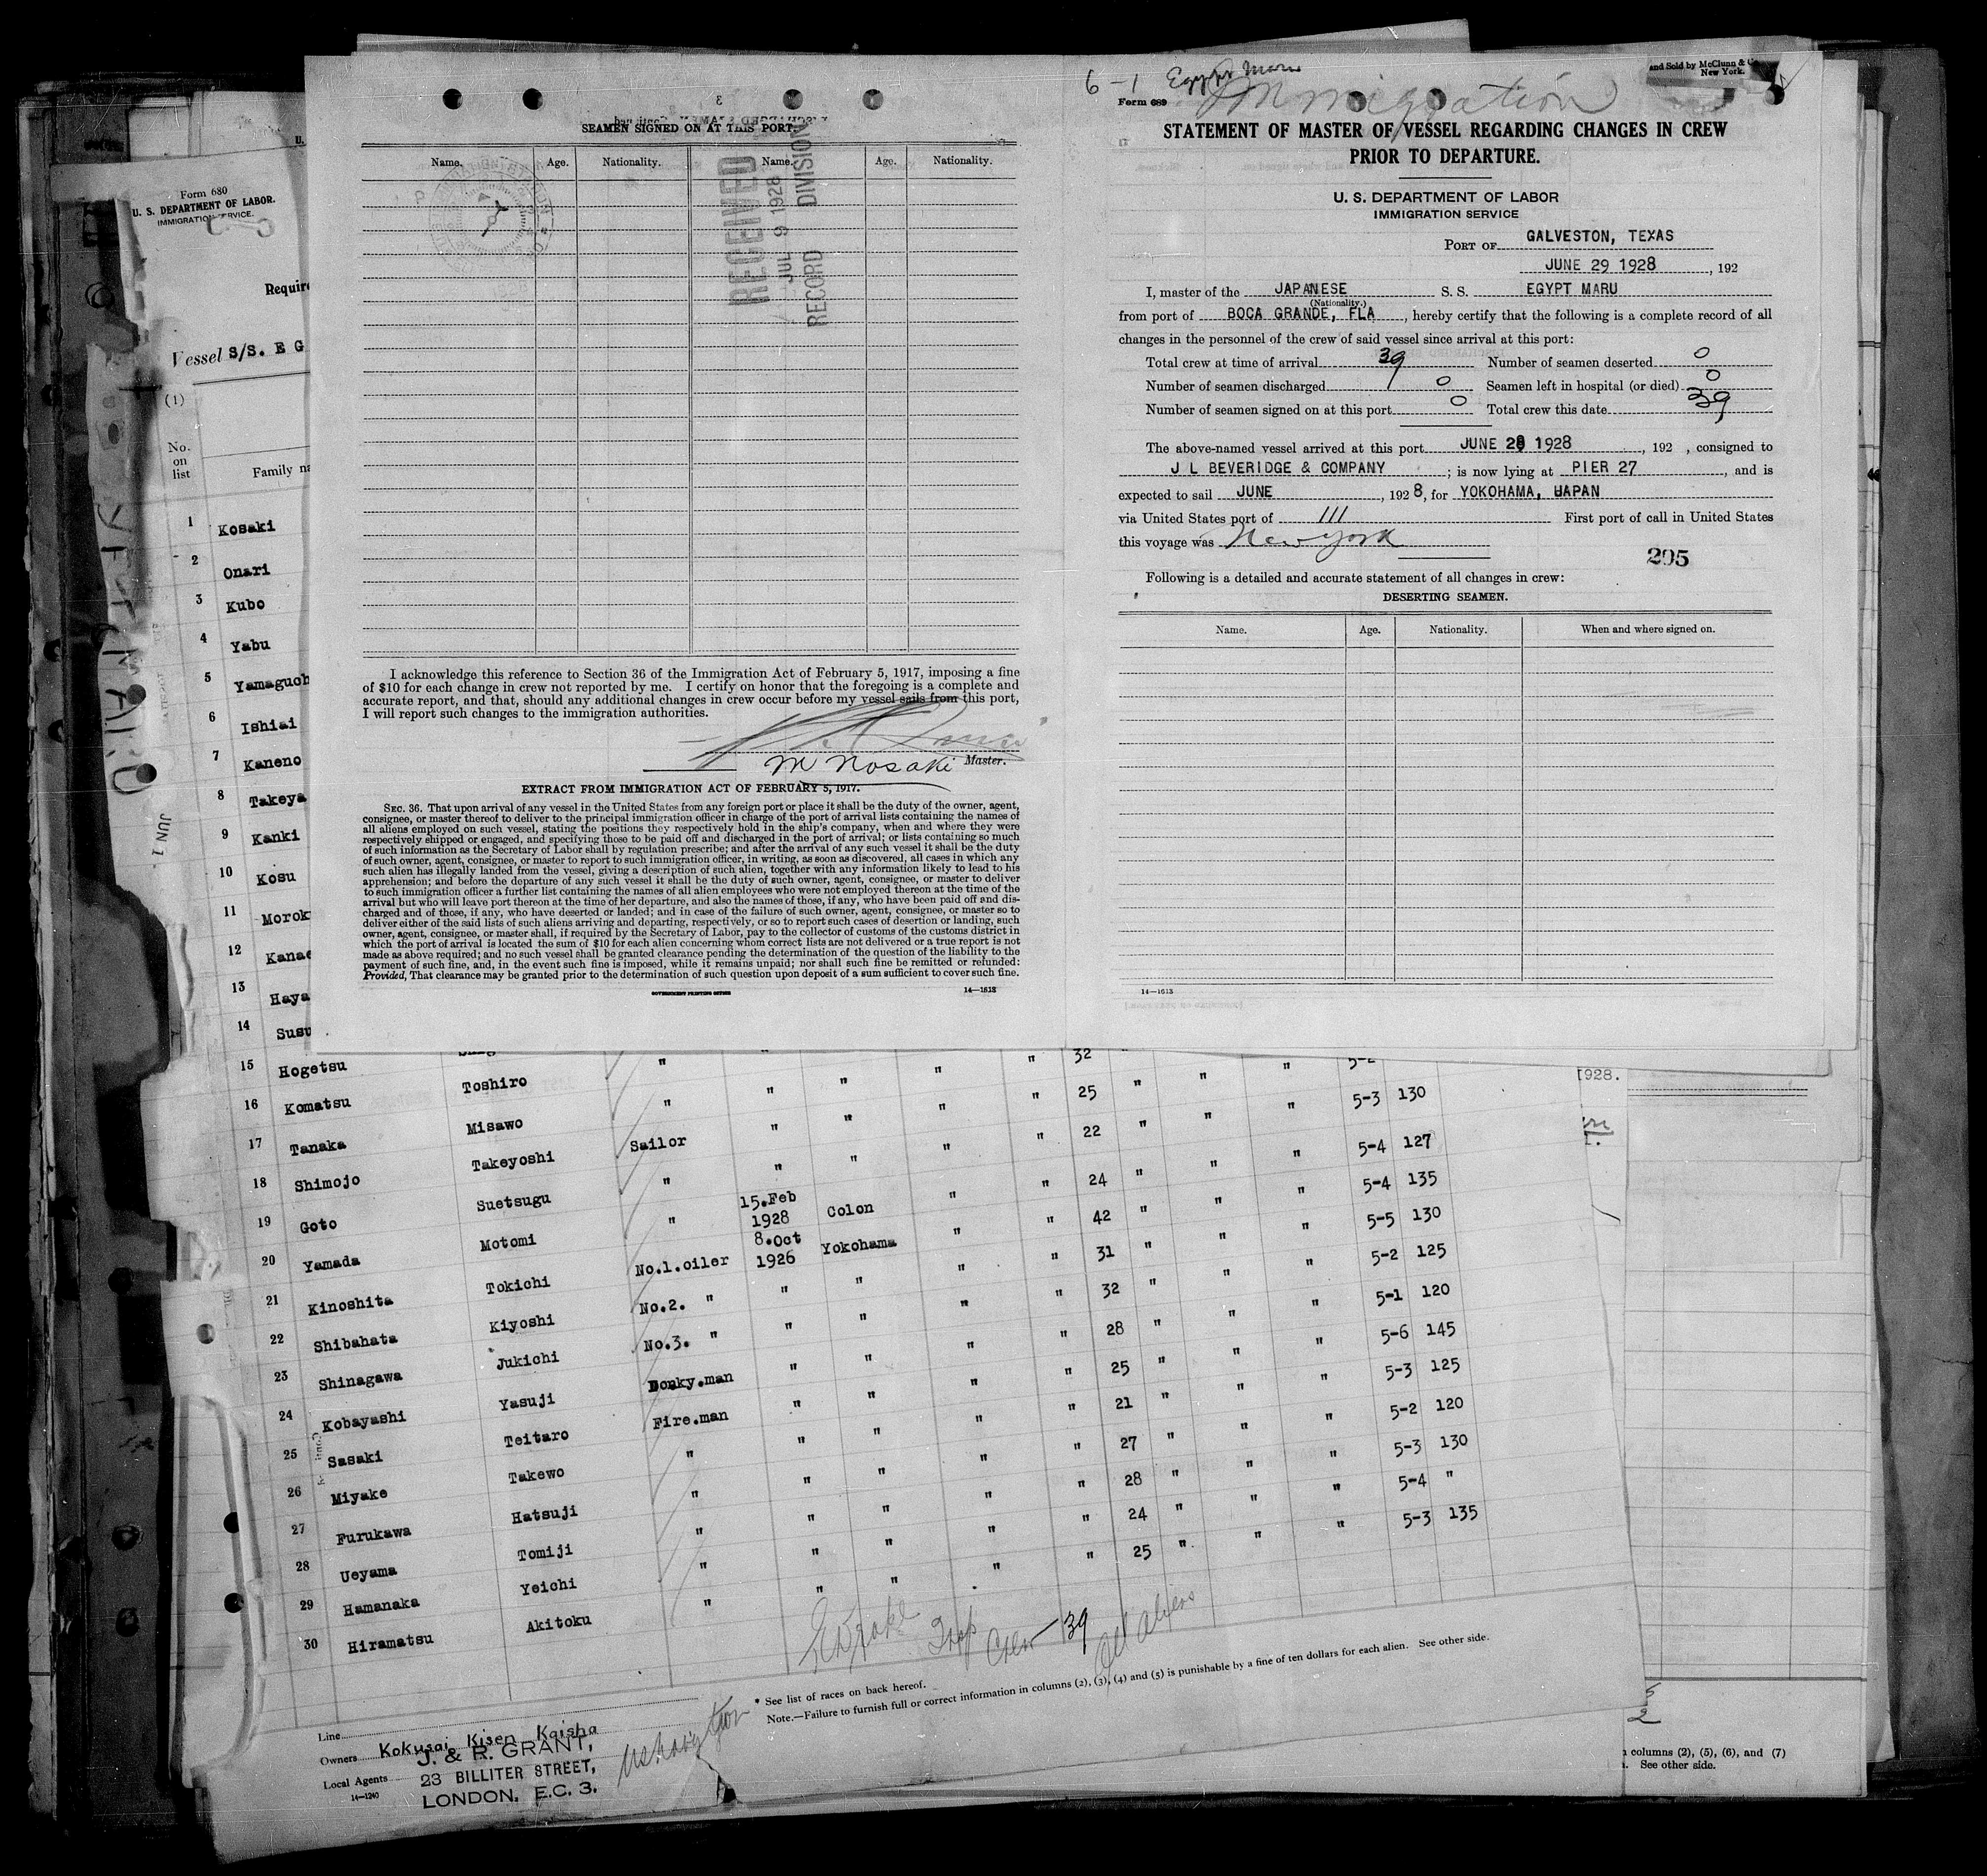 SEAMEN SIGNED ON AT THIS PORT.
Name. Age. Nationality. Name. Age. Nationality.
RECEIVED
JUL 9 1928
RECORD DIVISION
I acknowledge this reference to Section 36 of the Immigration Act of February 5, 1917, imposing a fine
of $10 for each change in crew not reported by me. I certify on honor that the foregoing is a complete and
accurate report, and that, should any additional changes in crew occur before my vessel sails from this port,
I will report such changes to the immigration authorities.
M Nosaki Master.
EXTRACT FROM IMMIGRATION ACT OF FEBRUARY 5, 1917.
SEC. 36. That upon arrival of any vessel in the United States from any foreign port or place it shall be the duty of the owner, agent,
consignee, or master thereof to deliver to the principal immigration officer in charge of the port of arrival lists containing the names of
all aliens employed on such vessel, stating the positions they respectively hold in the ship's company, when and where they were
respectively shipped or engaged, and specifying those to be paid off and discharged in the port of arrival; or lists containing so much
of such information as the Secretary of Labor shall by regulation prescribe; and after the arrival of any such vessel it shall be the duty
of such owner, agent, consignee, or master to report to such immigration officer, in writing, as soon as discovered, all cases in which any
such alien has illegally landed from the vessel, giving a description of such alien, together with any information likely to lead to his
apprehension; and before the departure of any such vessel it shall be the duty of such owner, agent, consignee, or master to deliver
to such immigration officer a further list containing the names of all alien employees who were not employed thereon at the time of the
arrival but who will leave port thereon at the time of her departure, and also the names of those, if any, who have been paid off and dis-
charged and of those, if any, who have deserted or landed; and in case of the failure of such owner, agent, consignee, or master so to
deliver either of the said lists of such aliens arriving and departing, respectively, or so to report such cases of desertion or landing, such
owner, agent, consignee, or master shall, if required by the Secretary of Labor, pay to the collector of customs of the customs district in
which the port of arrival is located the sum of $10 for each alien concerning whom correct lists are not delivered or a true report is not
made as above required; and no such vessel shall be granted clearance pending the determination of the question of the liability to the
payment of such fine, and, in the event such fine is imposed, while it remains unpaid; nor shall such fine be remitted or refunded:
Provided, That clearance may be granted prior to the determination of such question upon deposit of a sum sufficient to cover such fine.
GOVERNMENT PRINTING OFFICE 14—1613
and Sold by McClunn & C
New York.
6-1 Egypt Maru
Immigration
Form 689
STATEMENT OF MASTER OF VESSEL REGARDING CHANGES IN CREW
PRIOR TO DEPARTURE.
U. S. DEPARTMENT OF LABOR
IMMIGRATION SERVICE
PORT OF GALVESTON, TEXAS
JUNE 29 1928, 192
I, master of the JAPANESE S. S. EGYPT MARU
(Nationality.)
from port of BOCA GRANDE, FLA, hereby certify that the following is a complete record of all
changes in the personnel of the crew of said vessel since arrival at this port:
Total crew at time of arrival 39 Number of seamen deserted 0
Number of seamen discharged 0 Seamen left in hospital (or died) 0
Number of seamen signed on at this port 0 Total crew this date 39
The above-named vessel arrived at this port JUNE 28 1928, 192 , consigned to
J L BEVERIDGE & COMPANY ; is now lying at PIER 27, and is
expected to sail JUNE , 1928, for YOKOHAMA, JAPAN
via United States port of /// First port of call in United States
this voyage was New York
295
Following is a detailed and accurate statement of all changes in crew:
DESERTING SEAMEN.
Name. Age. Nationality. When and where signed on.
14—1613
Form 680
U. S. DEPARTMENT OF LABOR.
IMMIGRATION SERVICE.
Require
Vessel S/S. E G
(1)
No. on list
Family na
1 Kosaki
2 Onari
3 Kubo
4 Yabu
5 Yamaguch
6 Ishiai
7 Kaneno
8 Takeya
9 Kanki
10 Kosu
11 Morok
12 Kanae
13 Haya
14 Susu
15 Hogetsu " " " " 32 " 5-2
16 Komatsu Toshiro " " " " " 25 " " " 5-3 130
17 Tanaka Misawo Sailor " " " " 22 " " " 5-4 127
18 Shimojo Takeyoshi " " " " " 24 " " " 5-4 135
19 Goto Suetsugu " 15.Feb 1928 Colon " " 42 " " " 5-5 130
20 Yamada Motomi No.1.oiler 8.Oct 1926 Yokohama " " 31 " " " 5-2 125
21 Kinoshita Tokichi No.2. " " " " " 32 " " " 5-1 120
22 Shibahata Kiyoshi No.3. " " " " " 28 " " " 5-6 145
23 Shinagawa Jukichi Donky.man " " " " 25 " " " 5-3 125
24 Kobayashi Yasuji Fire.man " " " " 21 " " " 5-2 120
25 Sasaki Teitaro " " " " " 27 " " " 5-3 130
26 Miyake Takewo " " " " " 28 " " " 5-4 "
27 Furukawa Hatsuji " " " " " 24 " " " 5-3 135
28 Ueyama Tomiji " " " " " 25 "
29 Hamanaka Yeichi "
30 Hiramatsu Akitoku "
Crew 39
All Aliens
* See list of races on back hereof.
Note.—Failure to furnish full or correct information in columns (2), (3), (4) and (5) is punishable by a fine of ten dollars for each alien. See other side.
Line
Owners Kokusai Kisen Kaisha
Local Agents J. & R. GRANT,
23 BILLITER STREET,
LONDON, E.C. 3.
14—1240
1928.
columns (2), (5), (6), and (7)
See other side.
EGYPT MARU
JUN 1